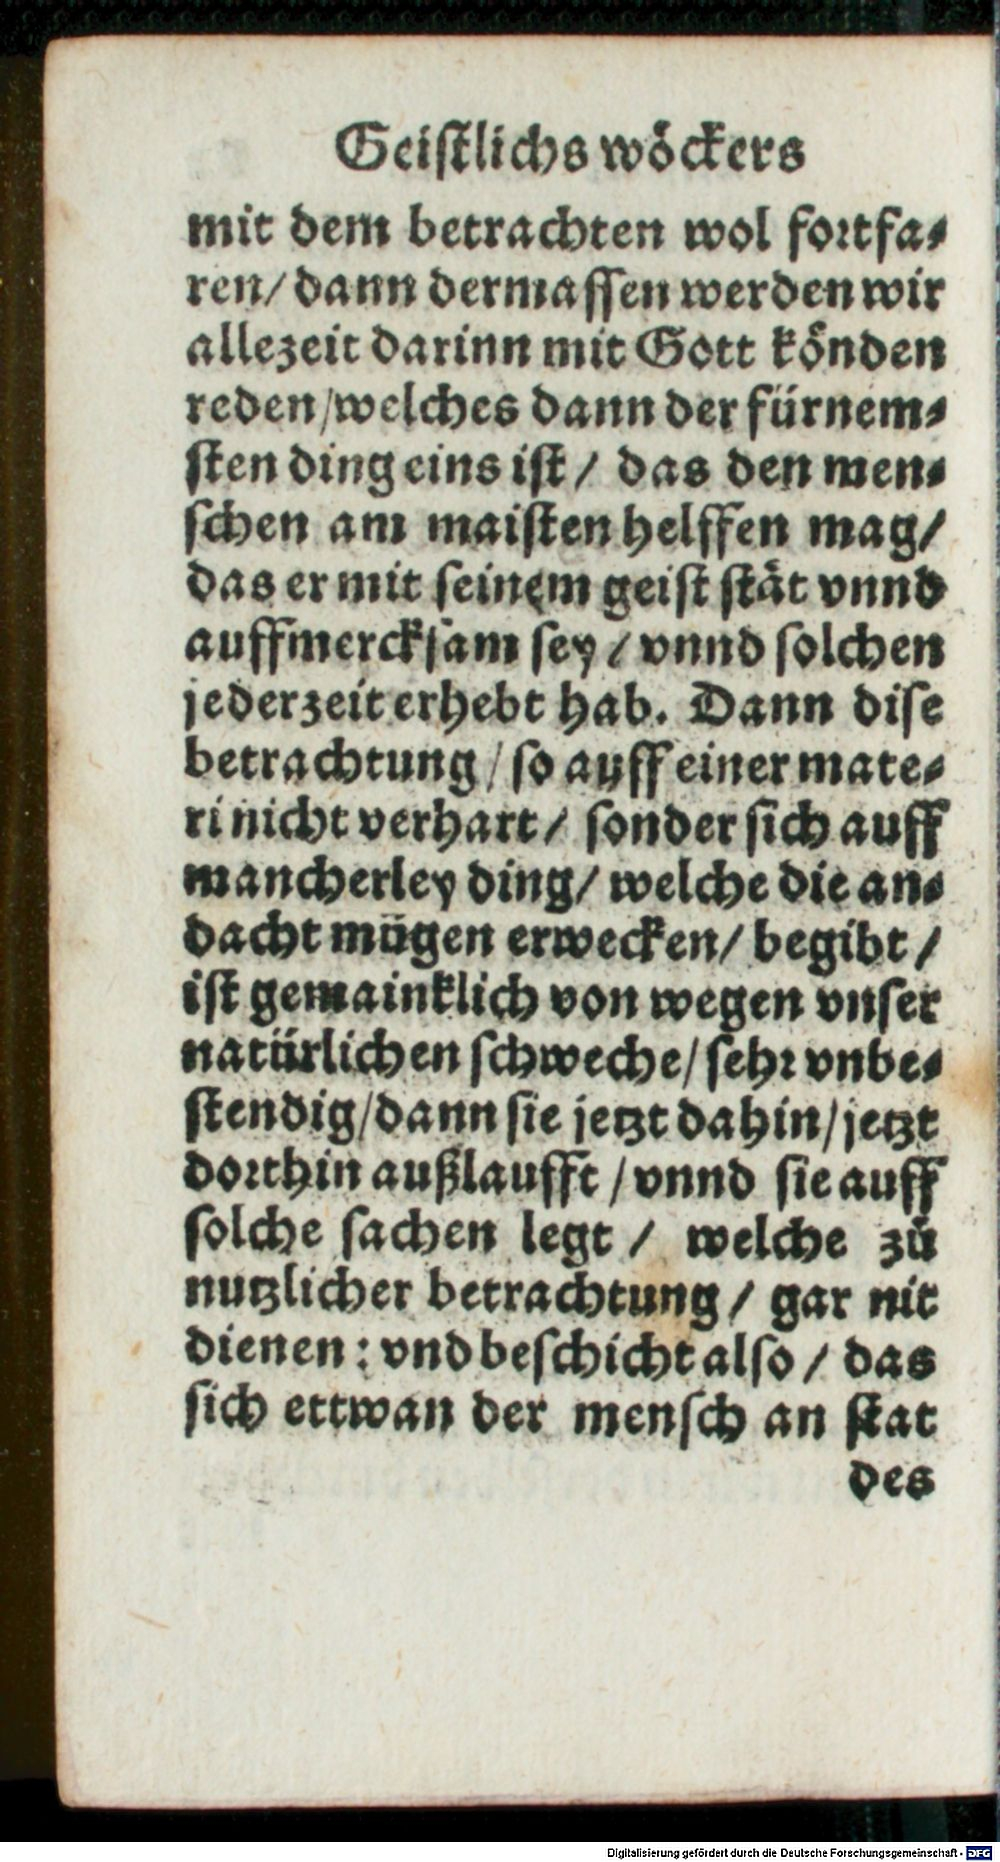 Geistlichs wöckers
mit dem betrachten wol fortfa⸗
ren/ dann dermassen werden wir
allezeit darinn mit Gott könden
reden/welches dann der fürnem⸗
sten ding eins ist/ das den men⸗
schen am maisten helffen mag/
das er mit seinem geist stät vnnd
auffmercksam sey/ vnnd solchen
jederzeit erhebt hab. Dann dise
betrachtung/ so auff einer mate⸗
ri nicht verhart/ sonder sich auff
mancherley ding/ welche die an⸗
dacht mügen erwecken/ begibt/
ist gemainklich von wegen vnser
natürlichen schweche/ sehr vnbe⸗
stendig/dann sie jetzt dahin/jetzt
dorthin außlaufft/vnnd sie auff
solche sachen legt/ welche zů
nutzlicher betrachtung/ gar nit
dienen: vnd beschicht also/ das
sich ettwan der mensch an stat
des
Digitalisierung gefördert durch die Deutsche Forschungsgemeinschaft - DFG